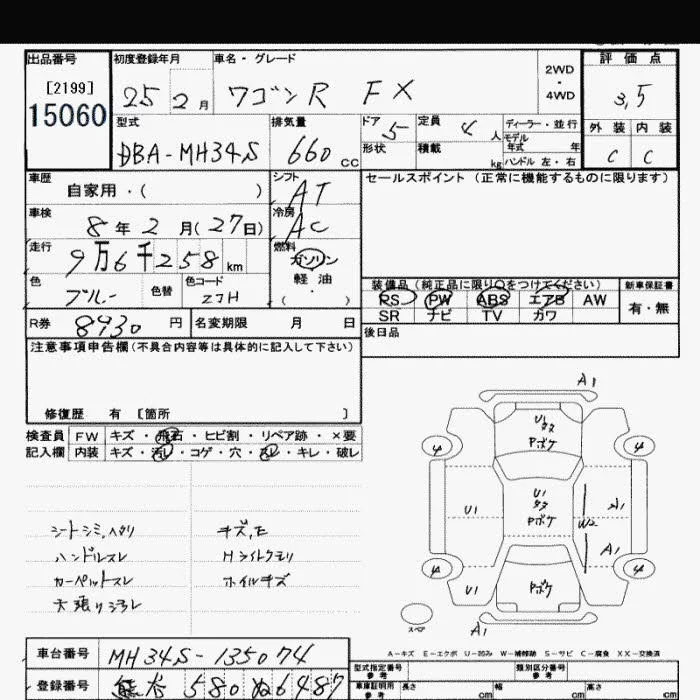 出品番号 初度登録年月 車名・グレード 評価点
[2199] 25年2月 ワゴンR FX 2WD・4WD 3.5
15060
型式 排気量 ドア 5 定員 4人 ディーラー・並行 外装 内装
DBA-MH34S 660cc 形状 積載 kg モデル年式 年 C C
ハンドル 左・右
車歴 シフト セールスポイント (正常に機能するものに限ります)
自家用・( ) AT
車検 冷房
8年2月(27日) AC
走行 燃料
9万6千258km ガソリン
軽油
色 色替 色コード ( ・ )
ブルー ZJH
装備品 (純正品に限り○をつけてください) 新車保証書
PS PW ABS エアB AW 有・無
SR ナビ TV カワ
R券 8930円 名変期限 月 日 後日品
注意事項申告欄(不具合内容等は具体的に記入して下さい)
修復歴 有 [箇所 ]
検査員 FW キズ・飛石・ヒビ割・リペア跡・×要
記入欄 内装 キズ・汚レ・コゲ・穴・スレ・キレ・破レ
シートシミ,ヘタリ
ハンドルスレ Hライトクモリ
カーペットスレ ホイルキズ
天張りヨゴレ
A1
U1
タタ
Pボケ
4 4
U1
タタ
Pボケ
U1 W2 A1
A1
4 4
Pボケ
U1
スペア
A1
A-キズ E-エクボ U-凹み W-補修跡 S-サビ C-腐食 XX-交換済
車台番号 MH34S-135074 型式指定番号 参考 類別区分番号 参考
登録番号 熊谷 580 ぬ 6487 車庫証明用 参考 長さ cm 幅 cm 高さ cm